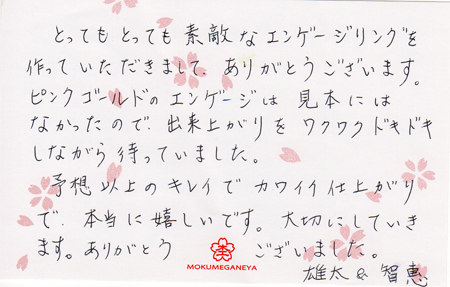 とってもとっても素敵なエンゲージリングを
作っていただきまして、ありがとうございます。
ピンクゴールドのエンゲージは見本には
なかったので、出来上がりをワクワクドキドキ
しながら待っていました。
予想以上のキレイでカワイイ仕上がり
で、本当に嬉しいです。大切にしていき
ます。ありがとう ございました。
MOKUMEGANEYA
雄太&智恵